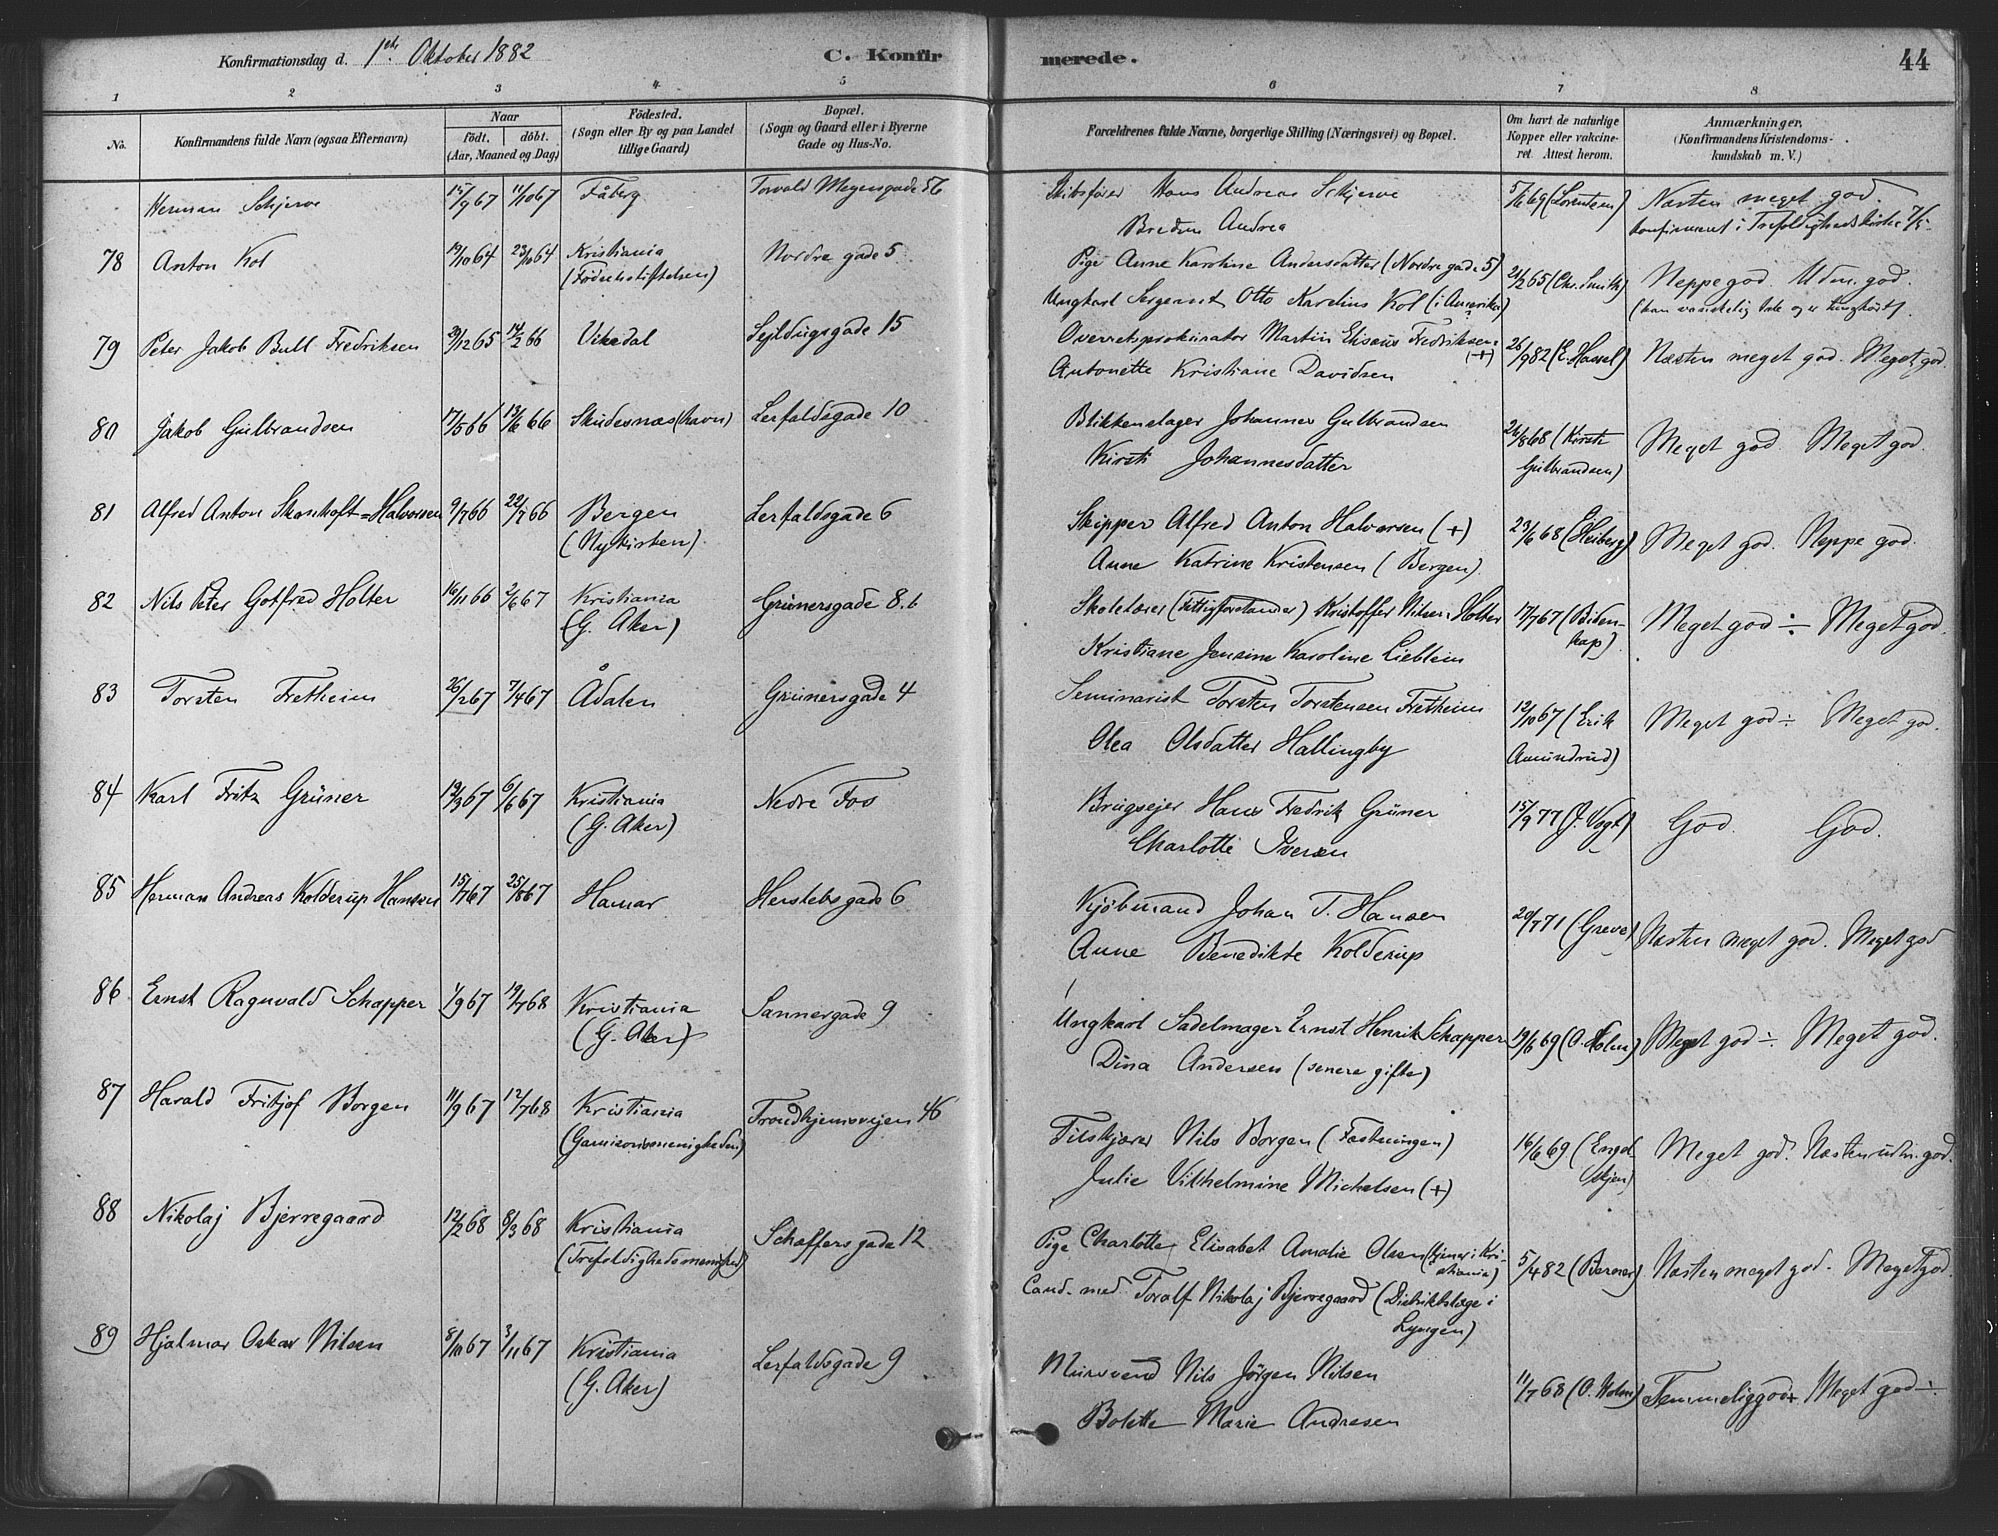 Konfirmationsdag d. 1ste Oktober 1882
C. Konfirmerede.
44
1 2 3 4 5 6 7 8
No.
Konfirmandens fulde Navn (ogsaa Efternavn)
Naar
födt. döbt.
(Aar, Maaned og Dag)
Födested.
(Sogn eller By og paa Landet
tillige Gaard)
Bopæl.
(Sogn og Gaard eller i Byerne
Gade og Hus-No.
Forældrenes fulde Navne, borgerlige Stilling (Næringsvei) og Bopæl.
Om havt de naturlige
Kopper eller vakcine-
ret Attest herom.
Anmærkninger,
(Konfirmandens Kristendoms-
kundskab m. V.)
Herman Schjerve 15/9 67 11/10 67 Fåberg Torvald Meyersgade 56 Skibsfører Hans Andreas Schjerve 5/6 69 (Lorentzen) Næsten meget god.
Andrea konfirmeret i Trefoldighedskirke
78 Anton Kol 19/10 64 23/10 64 Kristiania Nordre gade 5 Pige Anne Karoline Andersdatter (Nordre gade 5) 21/2 65 (Chr. Smith) Neppe god. Udm. god.
(Fødselsstiftelsen) Ungkarl Sergeant Otto Karelius Kol (i Amerika) (han vanskelig Tale og er tunghørt).
79 Peter Jakob Bull Fredriksen 29/12 65 14/2 66 Vikedal Sejldugsgade 15 Overretsprokurator Martin Elisæus Fredriksen (+) 26/9 82 (E. Hassel) Næsten meget god. Meget god
Antonette Kristiane Davidsen
80 Jakob Gulbrandsen 17/5 66 13/6 66 Skudesnæs (havn) Lerfaldsgade 10 Blikkenslager Johannes Gulbrandsen 26/8 68 (Kirsti Meget god. Meget god.
Kirsti Johannesdatter Gulbrandsen)
81 Alfred Anton Skonhoft=Halvorsen 9/7 66 22/7 66 Bergen Lerfaldsgade 6 Skipper Alfred Anton Halvorsen (+) 23/6 68 (Heiberg) Meget god. Neppe god.
(Nykirken) Anne Katrine Kristensen (Bergen)
82 Nils Peter Gotfred Holter 16/11 66 2/6 67 Kristiania Grünersgade 8.b Skolelærer (Fattigforstander) Kristoffer Nilsen Holter 17/7 67 (Biben- Meget god ÷ Meget god.
(G. Aker) Kristiane Jensine Karoline Lieblein kap)
83 Torsten Fretheim 26/2 67 7/4 67 Ådalen Grünersgade 4 Seminarist Torsten Torstensen Fretheim 12/10 67 (Erik Meget god ÷ Meget god.
Olea Olsdatter Hallingby Amundrud)
84 Karl Fritz Grüner 12/3 67 6/6 67 Kristiania Nedre Fos Brugsejer Hans Fredrik Grüner 15/9 77 (J. Vogt) God. God.
(G. Aker) Charlotte Iversen
85 Herman Andreas Kolderup Hansen 15/7 67 25/8 67 Hamar Herslebsgade 6 Kjøbmand Johan T. Hansen 20/7 71 (Greve) Næsten meget god. Meget god
Anne Benedikte Kolderup
86 Ernst Ragnvald Schapper 1/9 67 19/7 68 Kristiania Sannergade 9 Ungkarl Sadelmager Ernst Henrik Schapper 19/6 69 (A. Holm) Meget god ÷. Meget god.
(G. Aker) Dina Andersen (senere gifte)
87 Harald Fritjof Borgen 11/9 67 12/7 68 Kristiania Trondhjemsvejen 46 Filskjærer Nils Borgen (Fæstningen) 16/6 69 (Engel- Meget god. Næsten udm. god.
(Garnisonsmenigheden) Julie Vilhelmine Michelsen (+) skjøn)
88 Nikolaj Bjerregaard 12/2 68 8/3 68 Kristiania Schæffersgade 12 Pige Charlotte Elisabet Amalie Olsen (tjener i Kri- 5/4 82 (Berner) Næsten meget god. Meget god.
stiania)
(Trefoldighedsmenighed) Cand. med. Toralf Nikolaj Bjerregaard (Distriktslæge i
Lyngen)
89 Hjalmar Oskar Nilsen 8/10 67 3/11 67 Kristiania Lerfaldsgade 9 Mursvend Nils Jørgen Nilsen 11/7 68 (O. Holm) Temmelig god + Meget god ÷.
(G. Aker) Bolette Marie Andresen